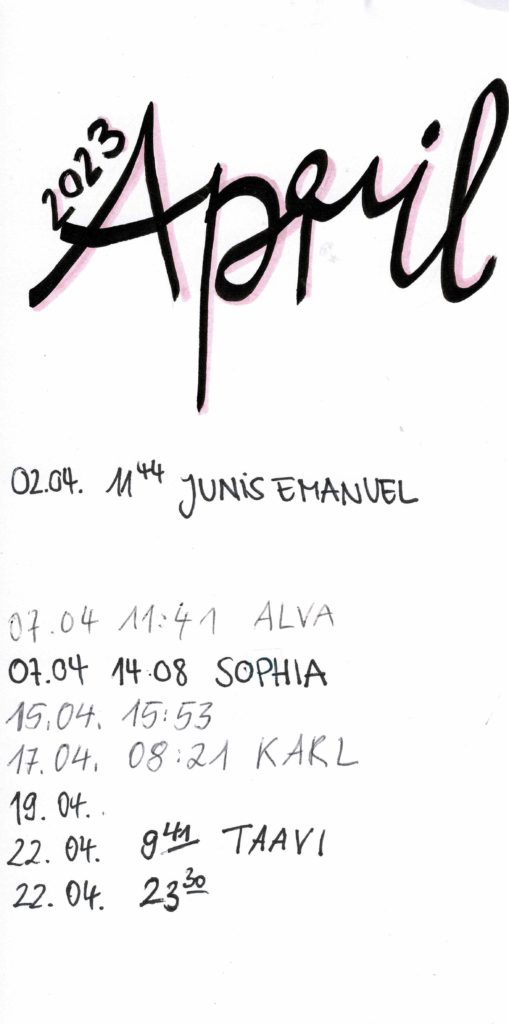 2023
April
02.04. 11⁴⁴ JUNIS EMANUEL
07.04 11:41 ALVA
07.04 14.08 SOPHIA
15.04. 15:53
17.04. 08:21 KARL
19.04.
22.04. 9⁴¹ TAAVI
22.04. 23³⁰